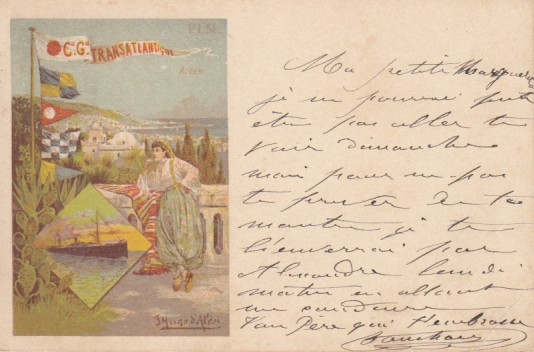 PLM
Cie Gle TRANSATLANTIQUE
Alger
Ma petite Marguerite
je ne pourrai peut
être pas aller te
voir dimanche
mais pour ne pas
te priver de ta
montre je te
l'enverrai par
Alexandre lundi
matin en allant
Ton Père qui t'embrasse
F. Hugo d'Alési